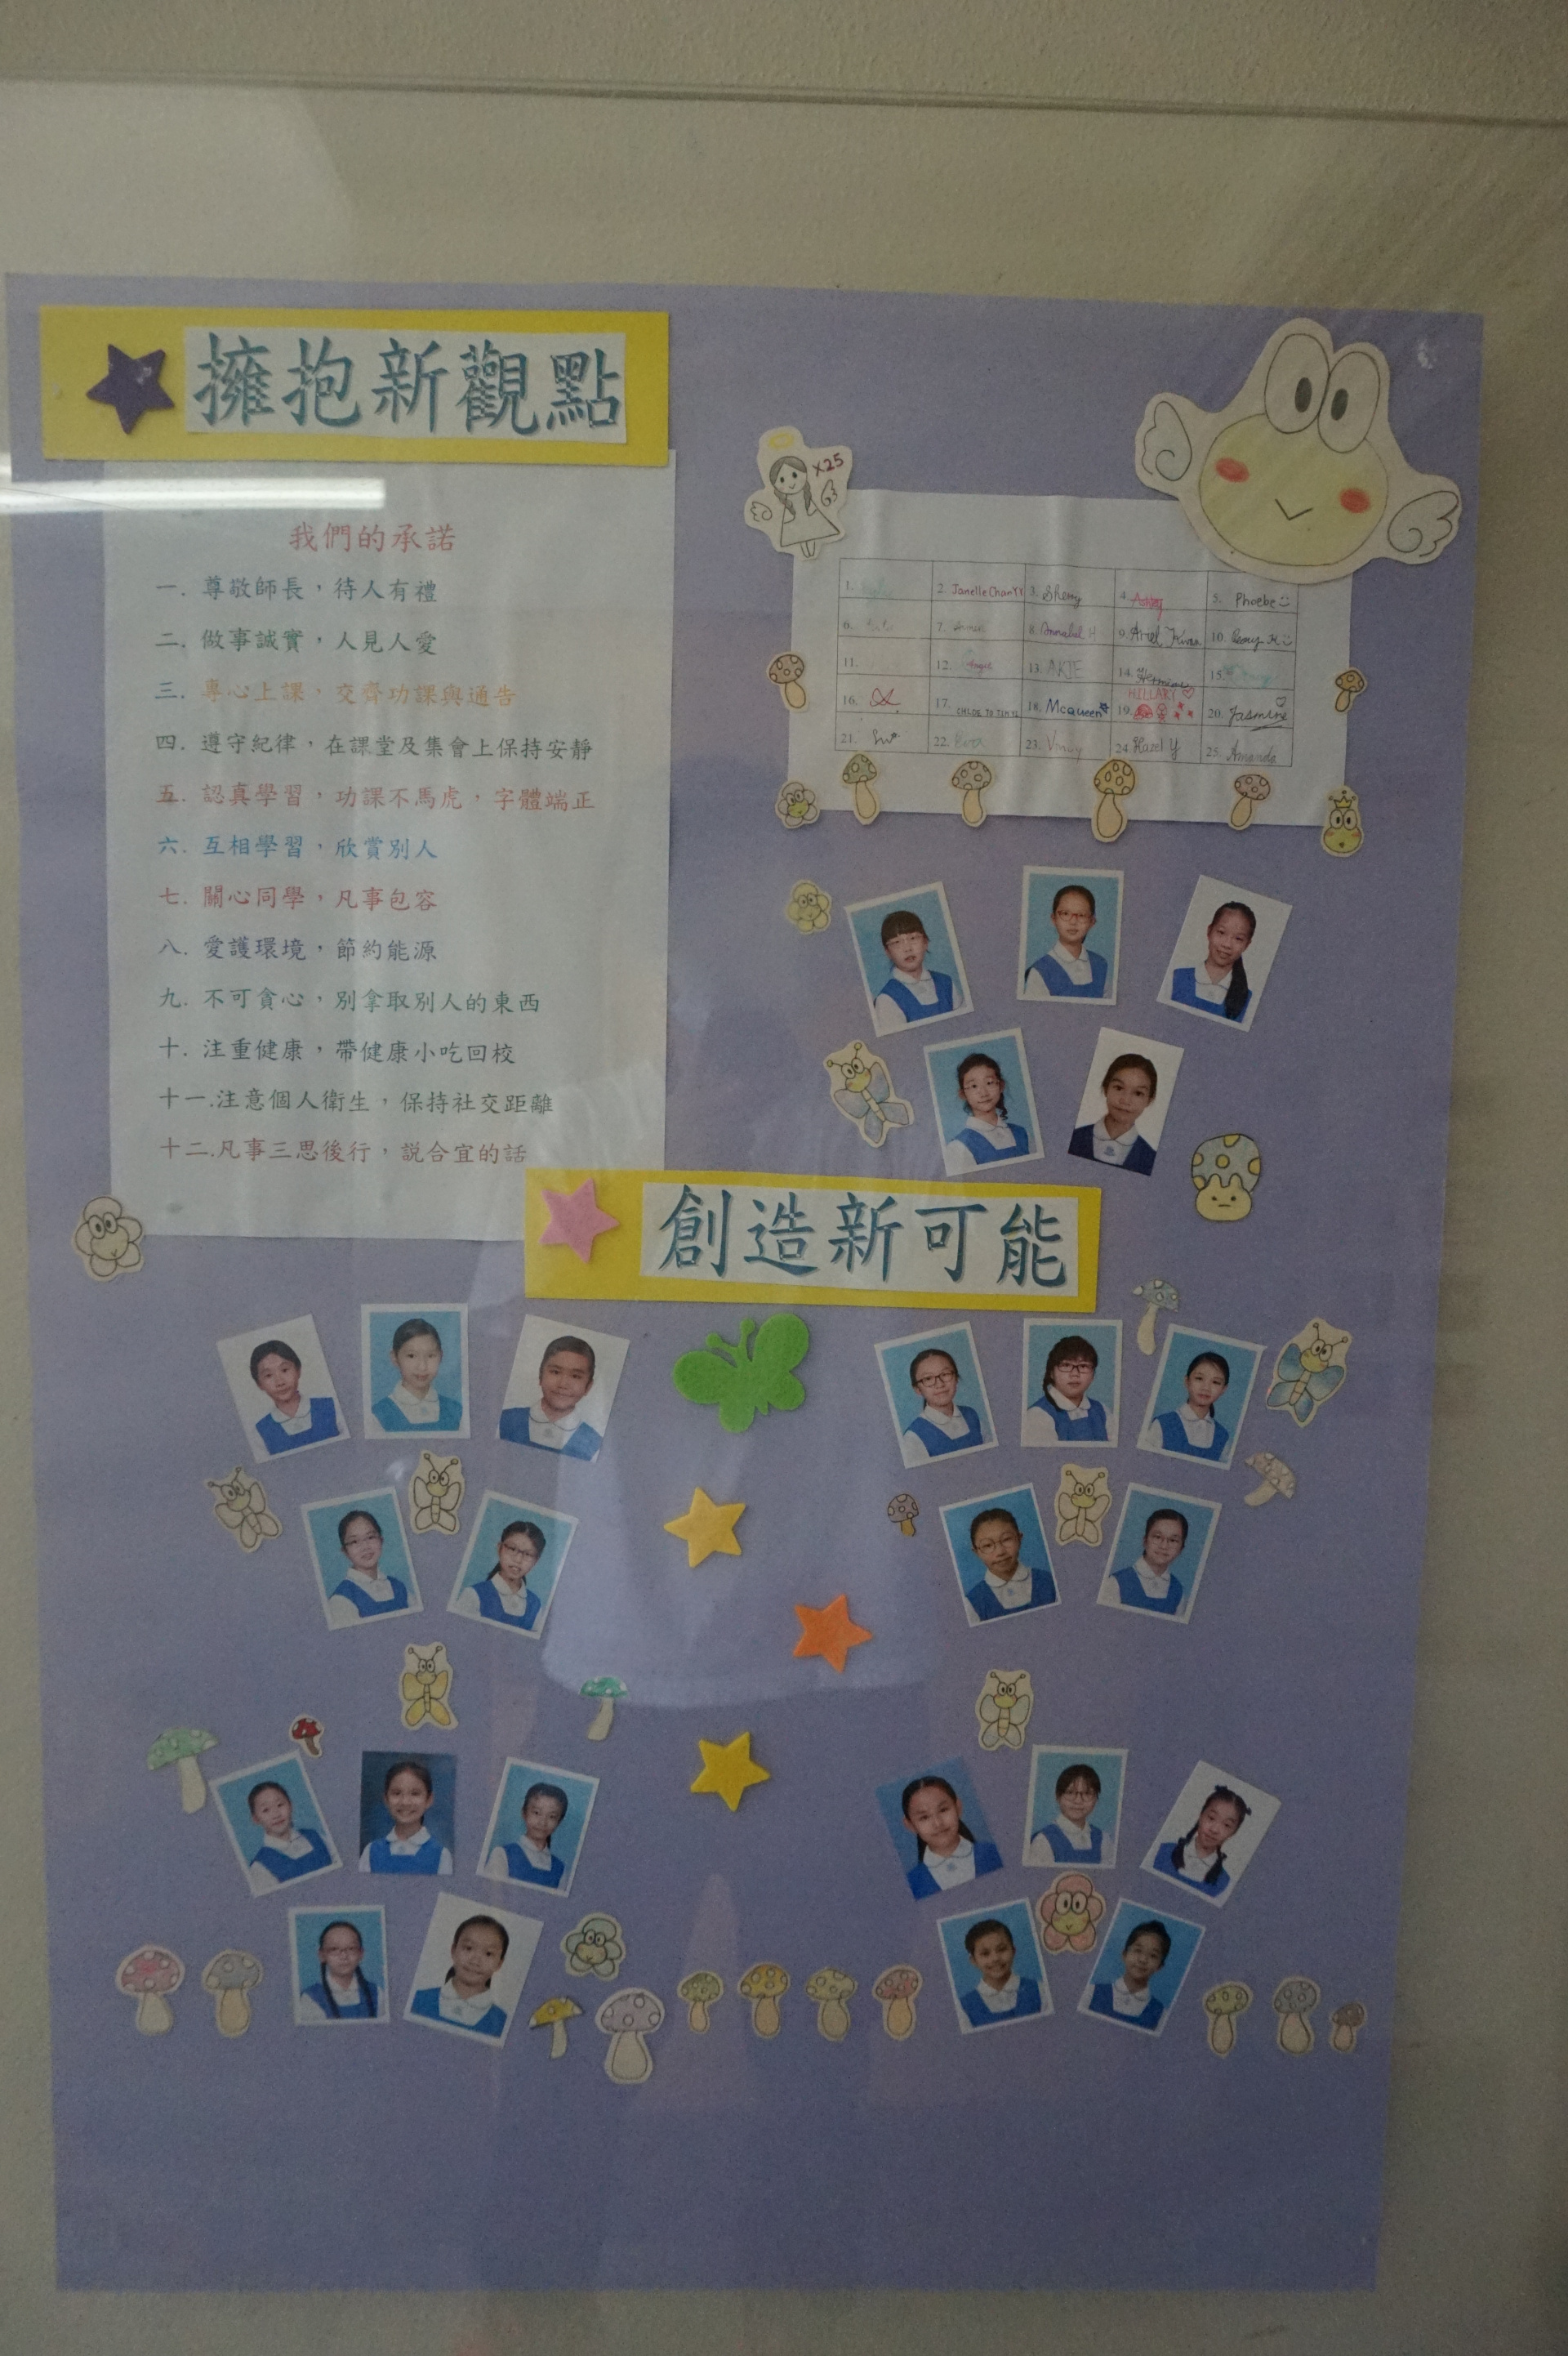 擁抱新觀點
我們的承諾
一. 尊敬師長,待人有禮
二. 做事誠實,人見人愛
三. 專心上課,交齊功課與通告
四. 遵守紀律,在課堂及集會上保持安靜
五. 認真學習,功課不馬虎,字體端正
六. 互相學習,欣賞別人
七. 關心同學,凡事包容
八. 愛護環境,節約能源
九. 不可貪心,別拿取別人的東西
十. 注重健康,帶健康小吃回校
十一.注意個人衛生,保持社交距離
十二.凡事三思後行,說合宜的話
x25
1. 2. Janelle Chan YY 3. Sherry 4. Ashley 5. Phoebe
6. 7. 8. Annabel H 9. Ariel Kwan 10.
11. 12. Angel 13. AKIE 14. 15.
16. 17. CHLOE TO 18. Mcqueen 19. HILLARY 20. Jasmine
21. 22. Eva 23. Vinny 24. Hazel Y 25. Amanda
創造新可能